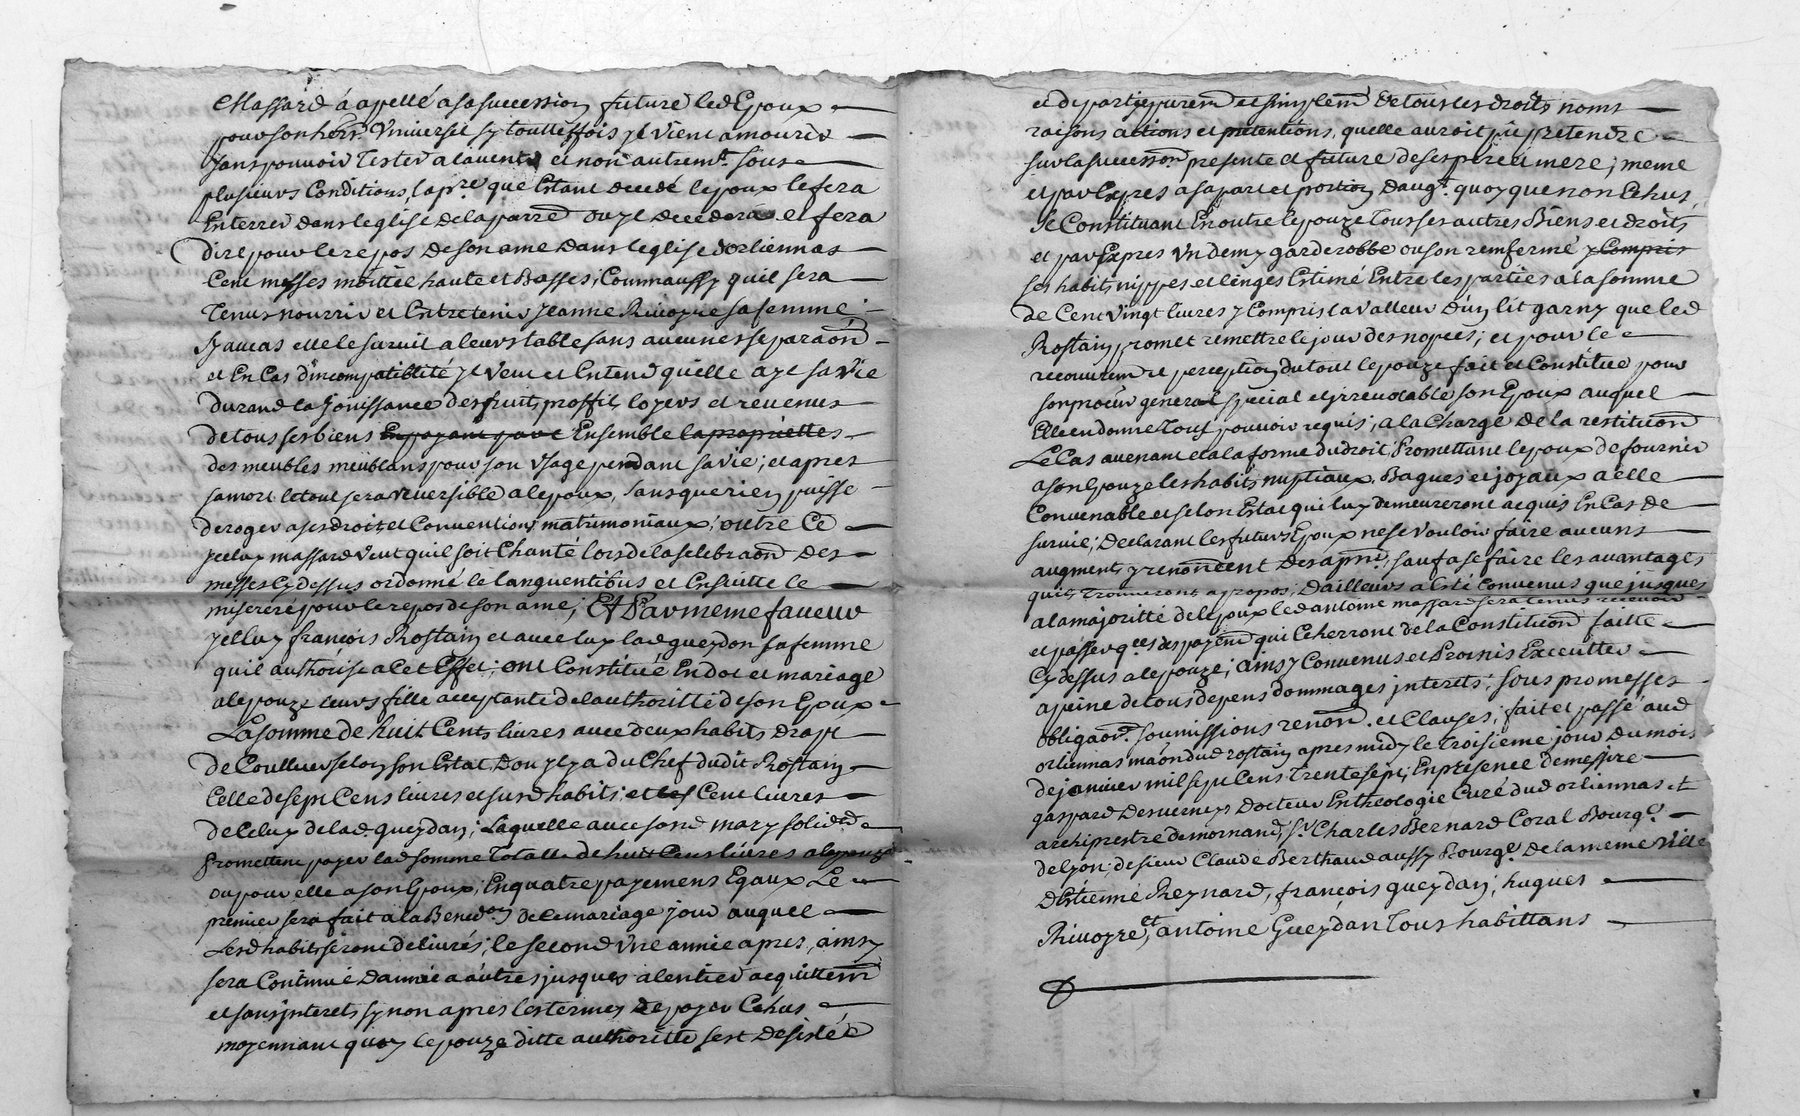 Massard á appellé a sa succession future led Epoux
pour son herr. Vniversel sy touttesfois jl vient a mourir
sans pouvoir Tester a lavenir et non autremt. sous
plusieurs Conditions, la pre. que Estant decedé lepoux le fera
Enterrer dans leglise de la parre. ou jl decedera et fera
dire pour le repos de son ame dans leglise dorliennas
Cent messes moittié haute et Basses; Comm'aussy quil sera
Tenus nourrir et Entretenir jeanne Rivoyre sa femme
Sy au cas elle le survit a leurs table sans aucunes separaõn
et En Cas d'incompatiblité jl veut et Entend qu'elle aye sa vie
durand la Jouissance des fruits proffits loyers et revenus
de tous ses biens Ensemble la propriettes
des meubles meublans pour son vsage pendant sa vie; et apres
sa mort le tout sera reversible a lepoux, sans que rien puisse
deroger a ses droit et Conventions matrimoniaux; outre Ce
jceluy massard veut quil soit Chanté lors de la selebraõn des
messes Cy dessus ordonné le languentibus et Ensuitte le
miserere pour le repos de son ame; Et Par meme faveur
jcelluy françois Rostain et avec luy lad gueydon sa femme
quil authorise a Cet Effet; ont Constitué En dot et mariage
a lepouze leurs fille acceptante de lauthoritté de son Epoux
La somme de huit Cents livres avec deux habits drapt
de Coulleur selon son Estat, Dou jl y a du Chef dudit Rostain
Celle de sept Cens livres et susd habits, et les Cent livres
de Celuy de lad. gueydan; Laquelle avec sond mary solidt.
promettent payer lad somme Totalle de huit Cens livres a lepouze
ou pour elle a son Epoux; En quatre payemens Egaux Le
premier sera fait a la Bened.on de Ce mariage jour auquel
Lesd habits seront delivrés; le second vne année apres, ainsy
sera Continué dannée a autres jusques a lentier acquittem̃
et sans jnterets sy non apres les termes de payer Echus
moyennant quoy lepouze ditte authoritté sest desistée
et departie purem̃ et simplem̃ de tous les droits noms
raisons actions et pretentions, quelle auroit pû pretendre
sur la succession presente et future de ses pere et mere; meme
et par Expres a sa part et portion daugt. quoy que non Echus,
se Constituant En outre lepouze tous ses autres Biens et droits
et par Expres vn demy garderobbe ou son remfermé y Compris
ses habits nippes et linges Estimé Entre les parties a la somme
de Cent vingt livres y Compris la valleur d'un lit garny que led
Rostain promet remettre le jour des nopces; et pour le
recouvrem̃ et perception du tout lepouze fait et Constitue pour
son procur general special et irrevotable son Epoux auquel
Elle en donne tout pouvoir requis; a la Charge de la restitution
Le Cas avenant et a la forme du droit; Promettant lepoux de fournir
a son Epouze les habits nuptiaux, Bagues et joyaux a elle
Convenable et selon Estat qui luy demeureront acquis En Cas de
survie; Declarant les futurs Epoux ne se vouloir faire aucuns
augments y renoncent des apnt., sauf a se faire les avantages
quils trouveront a propos; Dailleurs a Esté Convenus que jusques
a la majoritté de lepoux led antoine massard sera tenus recevoir
et passer qces. des payem̃ qui Echerront de la Constitution faitte
Cy dessus a lepouze; ainsy Convenus et Promis Executter
a peine de tous depens dommages jnterets; sous promesses
obligaõn. soumissions renõn. et Clauses; fait et passé aud
orliennas maõn dud rostain apres midy le Troisieme jour du mois
de janvier mil sept Cens Trente sept; En presence de messire
gaspard Desverneys Docteur En theologie Curé dud orliennas et
archiprestre de mornand; sr. Charles Bernard Coral Bourgs.
de lyon; de sieur Claude Berthaud aussy Bourgs. de la meme ville
d'Estienne Reynard, françois gueydan; hugues
Rivoyre, et antoine Gueydan tous habittans